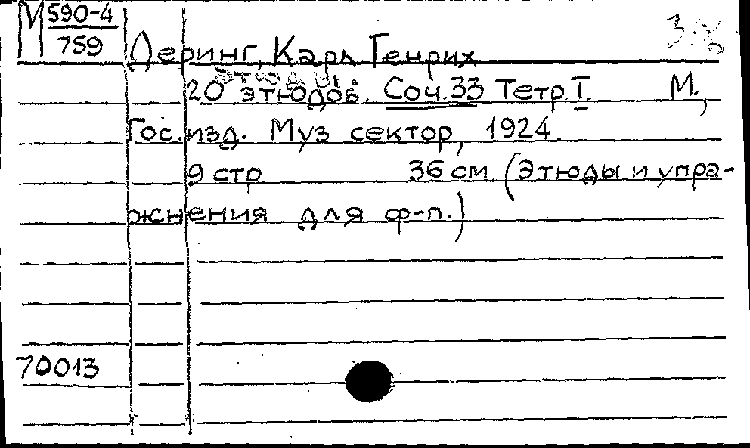 М 590-4
759
Деринг, Карл Генрих
этюды
20 этюдов. Соч. 33 Тетр. I. М.,
Гос. изд. Муз сектор, 1924.
9 стр 36 см. (Этюды и упра-
жнения для ф-п.)
70013